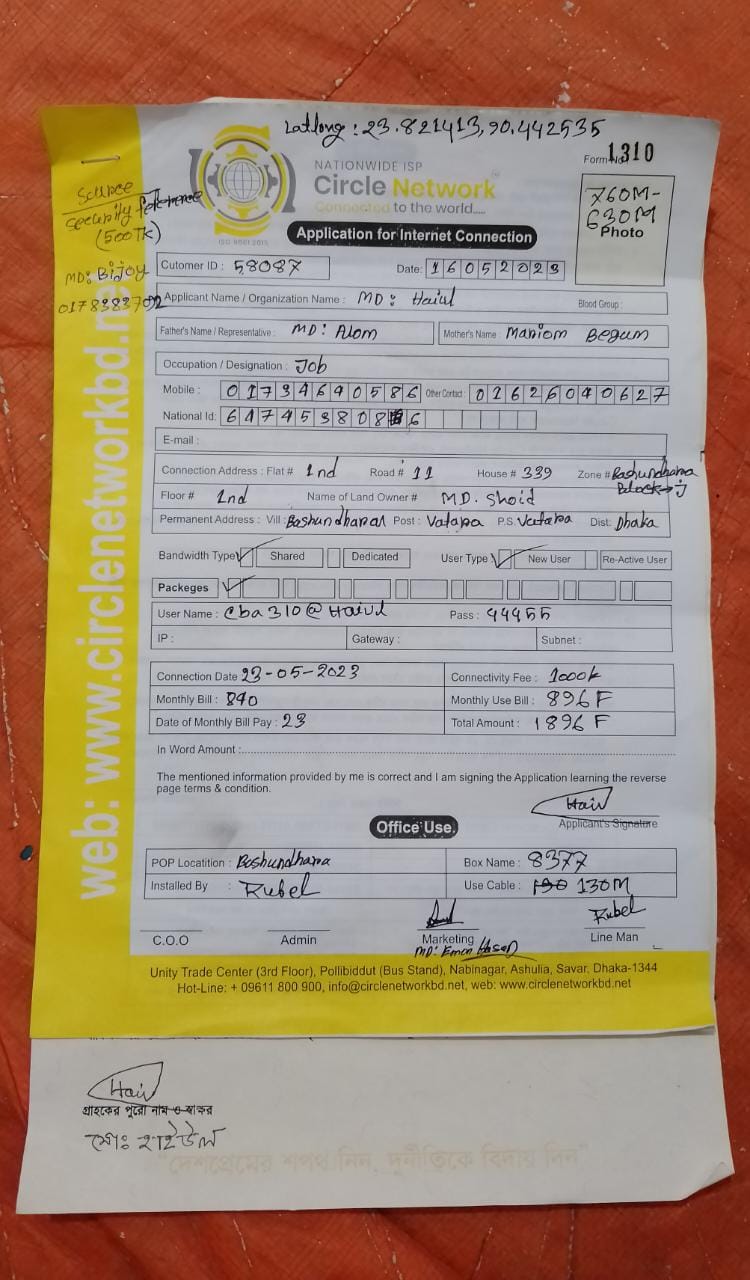 Latlong : 23.821413, 90.442535
Form No 1310
NATIONWIDE ISP
Circle Network
Connected to the world.....
ISO 9001:2015
760M-
630M
Photo
Source
Security Reference
(500TK)
MD: Bijoy
01783837092
Application for Internet Connection
Cutomer ID : 58087 Date: 16052023
Applicant Name / Organization Name : MD: Haiul Blood Group :
Father's Name / Representative : MD: Alom Mother's Name : Mariom Begum
Occupation / Designation : Job
Mobile : 01734640586 Other Contact : 01626040627
National Id: 647453808 6
E-mail :
Connection Address : Flat # 1nd Road # 11 House # 339 Zone # Bashundhara
Block → j
Floor # 1nd Name of Land Owner # MD. Shoid
Permanent Address : Vill: Bashundharar Post : Vatara P.S. Vatara Dist: Dhaka
Bandwidth Type Shared Dedicated User Type New User Re-Active User
Packeges
User Name : cba310@Haiul Pass : 44455
IP : Gateway : Subnet :
Connection Date 23-05-2023 Connectivity Fee : 1000k
Monthly Bill : 840 Monthly Use Bill : 896 F
Date of Monthly Bill Pay : 23 Total Amount : 1896 F
In Word Amount :
The mentioned information provided by me is correct and I am signing the Application learning the reverse
page terms & condition.
Haiul
Applicant's Signature
Office Use.
POP Locatition : Bashundhara Box Name : 8377
Installed By : Rubel Use Cable : 190 130M
Rubel
C.O.O Admin Marketing Line Man
MD: Emon Hasan
Unity Trade Center (3rd Floor), Pollibiddut (Bus Stand), Nabinagar, Ashulia, Savar, Dhaka-1344
Hot-Line: + 09611 800 900, info@circlenetworkbd.net, web: www.circlenetworkbd.net
web: www.circlenetworkbd.net
Haiul
গ্রাহকের পুরো নাম ও স্বাক্ষর
মোঃ হাইউল
"দেশপ্রেমের শপথ নিন, দুর্নীতিকে বিদায় দিন"